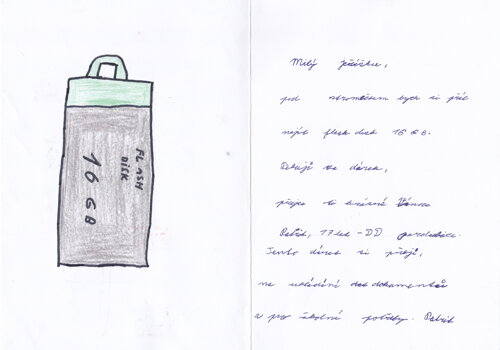 FLASH
DISK
16 GB
Milý Ježíšku,
pod stromečkem bych si přál
najít flesh disk 16 GB.
Děkuji za dárek,
přeju ti krásné Vánoce
Patrik, 17 let - DD Pardubice.
Tento dárek si přeji,
na ukládání dat dokumentů
a pro školní potřeby. Patrik